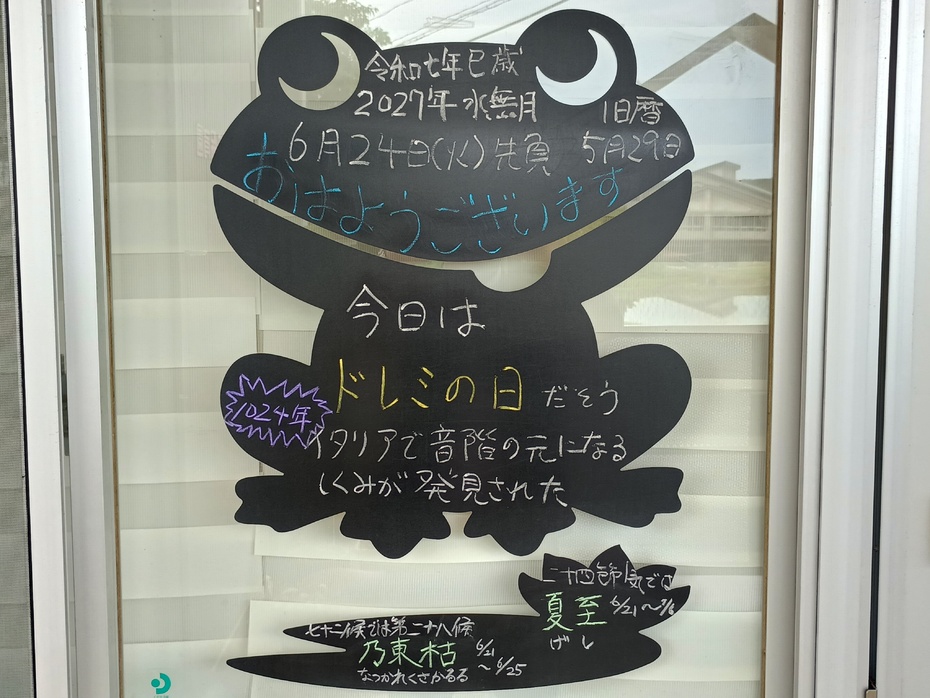 令和七年巳歳
2027年 水無月 旧暦
6月24日(火)先負 5月29日
おはようございます
今日は
ドレミの日 だそう
1024年
イタリアで音階の元になる
しくみが発見された
二十四節気では
夏至 6/21〜7/6
げし
七十二候では第二十八候
乃東枯 6/21〜6/25
なつかれくさかるる